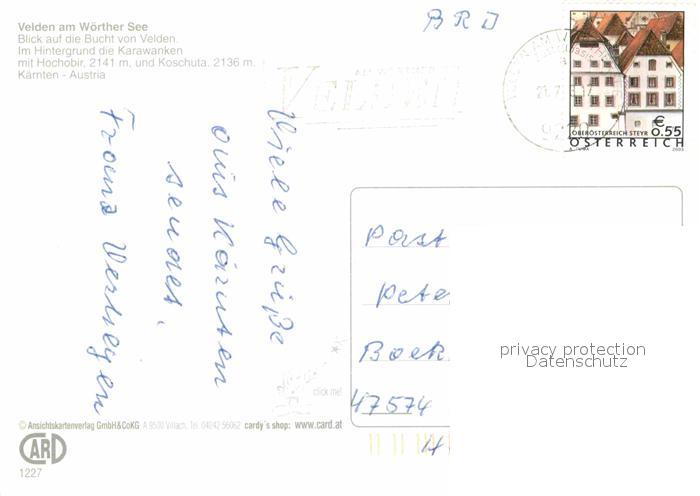 Velden am Wörther See
Blick auf die Bucht von Velden.
Im Hintergrund die Karawanken
mit Hochobir, 2141 m, und Koschuta, 2136 m.
Kärnten - Austria
BRD
AM WÖRTHER
VELDEN
9220
€
0.55
OBERÖSTERREICH STEYR
ÖSTERREICH
2003
Viele Grüße
aus Kärnten
sendet,
Franz Verhegen
Past
Pete
Boek
47574
privacy protection
Datenschutz
click me!
© Ansichtskartenverlag GmbH&CoKG A 9500 Villach, Tel. 04242-56062 cardy's shop: www.card.at
CARD
1227